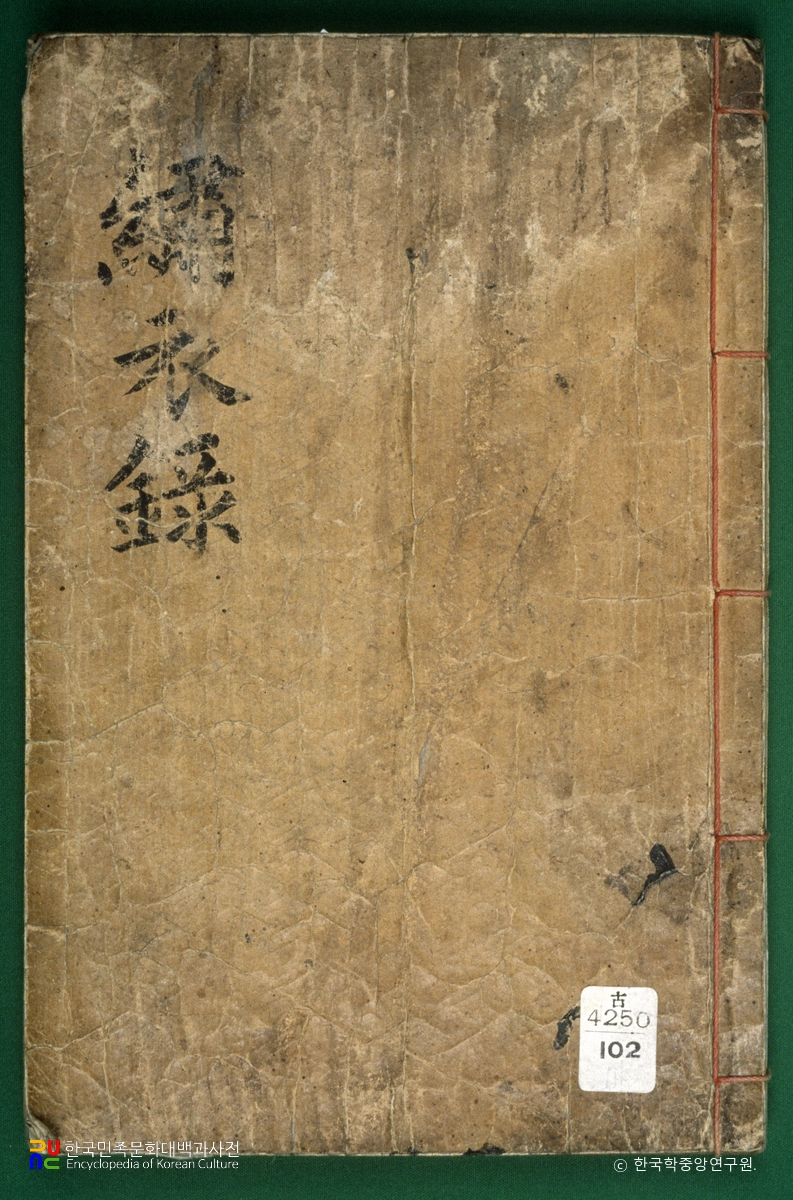 繡衣錄
古
4250
102
한국민족문화대백과사전
Encyclopedia of Korean Culture
ⓒ 한국학중앙연구원.